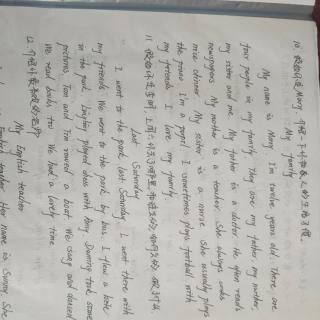 10. 假如你是Mary, 介绍一下你和家人的生活习惯。
My family
My name is Mary I'm twelve years old. There are
four people in my family They are my father, my mother
my sister and me. My father is a doctor He often reads
newspapers My mother is a teacher. She always cooks
nice dinner My sister is a nurse She usually plays
the piano I'm a pupil I sometimes plays football with
my friends I love my family
11
Last Saturday
I went to the park last Saturday I went there with
my friends We went to the park by bus I flew a kite
in the park. Lingling played chess with Amy Daming took some
pictures, Tom and Tim rowed a boat. We sang and danced
We read books too We had a lovely time
12
My English teacher
English teacher Her name is Sunny. She